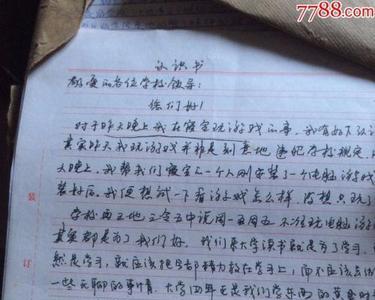 7788.com
认识书
敬爱的各位学校领导：
您们好！
对于昨天晚上我在寝室玩游戏的事，我有如下认
其实昨天我玩游戏并非是刻意地违犯学校规定，
天晚上，我帮我们寝室人一个人刚安装了一个电脑游戏
装好后，我便想试一下看游戏怎么样，
学校再三地三令五申说周一至周五不准玩电脑游
其实都是为了我们好。我们来大学读书就是为了学习，
然是学习，就应该把全部精力放在学习上，而不应该去
一些无聊的事情。大学四年是我们学东西的黄金时
装
订